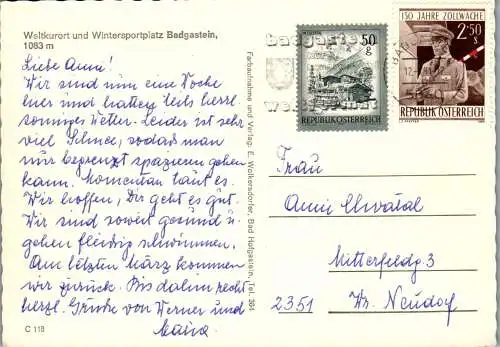 Weltkurort und Wintersportplatz Badgastein,
1083 m
Liebe Anni!
Wir sind nun eine Woche
hier und hatten teils herrl.
sonniges Wetter. Leider ist sehr
viel Schnee, sodaß man
nur begrenzt spazieren gehen
kann. Momentan taut es.
Wir hoffen, Dir geht es gut.
Wir sind soweit gesund u.
gehen fleißig schwimmen.
Am letzten März kommen
wir zurück. Bis dahin recht
herzl. Grüße von Werner und
Maria
C 118
Farbaufnahme und Verlag: E. Wolkersdorfer, Bad Hofgastein, Tel. 364
badgastein
50
g
REPUBLIK ÖSTERREICH
150 JAHRE ZOLLWACHE
2.50
S
REPUBLIK ÖSTERREICH
Frau
Anni Chvatal
Mitterfeldg. 3
2351 Wr. Neudorf